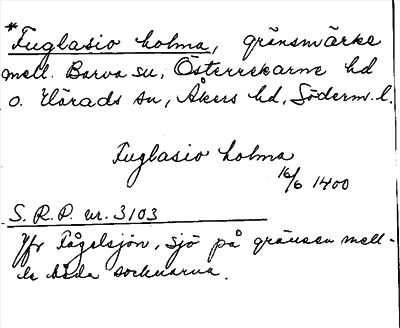 *Fuglasio holma, gränsmärke
mell. Barva sn, Österrekarne hd
o. Härads sn, Åkers hd, Söderm. l.
Fuglasio holma
16/6 1400
S. R. P. nr. 3103
Jfr Fågelsjön, sjö på gränsen mell-
de båda socknarna.